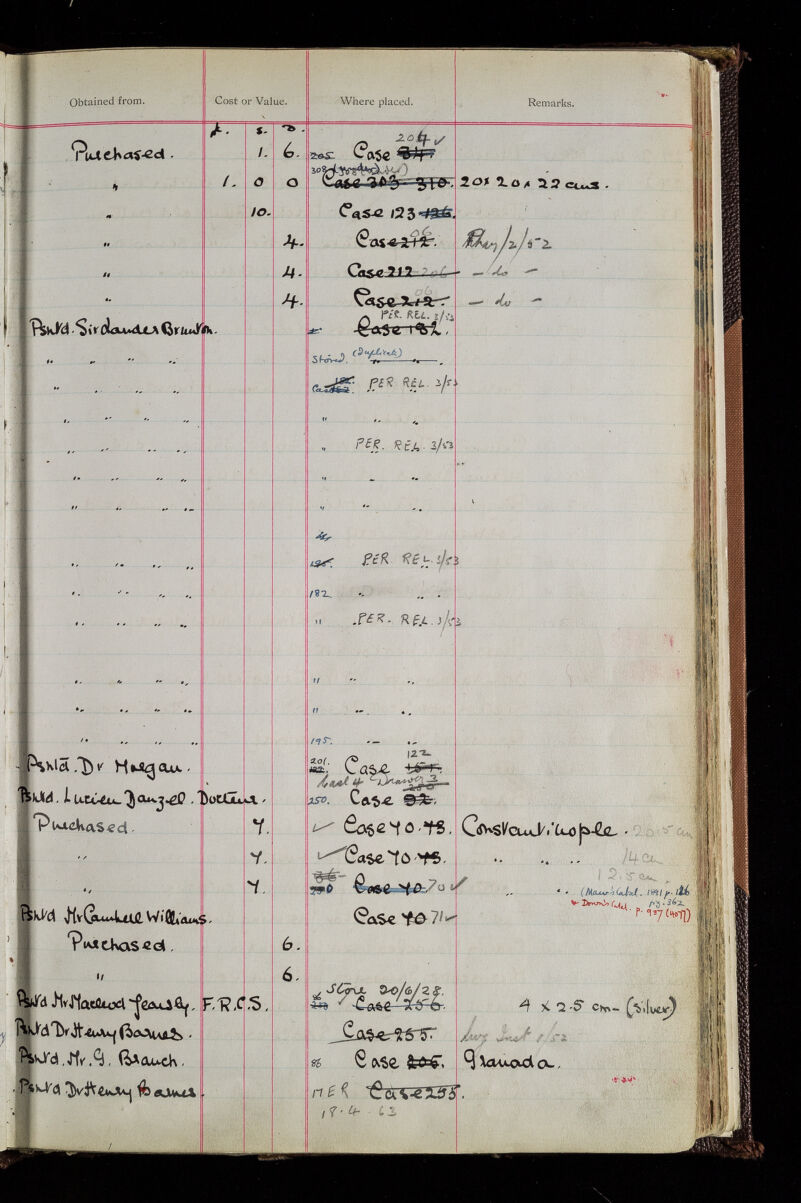 Obtained from. Cost or Value. Where placed. Remarks.
£. s. D.
204 ✓
Purchased. 1. 6. 205 Case 347
308
" 1. 0 0 Case 303 310. 20 x 20 x 22 cms.
" 10. Case 123 126.
06
" 4. Case 212. /2/52
" 4. Case 212 206 — do —
06
" 4. Case 212. — do —
PER. REL. 3/53
Psntd. Sir Lauder Brunton. Case 182.
" " " " Stored. (Duplicate) " "
182.
" " " " Case 182. PER REL. 3/53
" " " " " " "
" " " " " PER. REL. 3/53
" " " " " " "
" " " " " " "
" " " " 195. PER REL. 3/53
" " " " 182 " " "
" " " " " PER. REL. 3/53
" " " " " " "
" " " " " " "
" " " " 195. " "
122
Psntd. Dr Morgan. 201. Case
Drawer 3
Psntd. Lucien Danzel. Docteur. 250. Case 92.
Purchased. 7. ✓ Case 70. 73. Constantinople. 20.5 cm
" 7. ✓ Case 70. 73. " " " 14 cm
12.5 cm.
" 7. Case 70. 70 ✓ " " " (Maw's Catal. 1891 p. 126
Down's Catal. pg. 362
p. 937 (4077)
Psntd Mr Cambell Williams. Case 70 71 ✓
Purchased. 6.
" 6.
Store 20/6/28.
Psntd Mr Macleod Yearsley. F.R.C.S. Case 256. 4 x 2.5 cm - (Silver)
Psntd Dr Henry Barnes. Case 255. Inst /52
Psntd. Mr. G. Branch. 86 Case 206. Granada.
Psntd Dr Henry Barnes. MER Case 255.
18.4.63